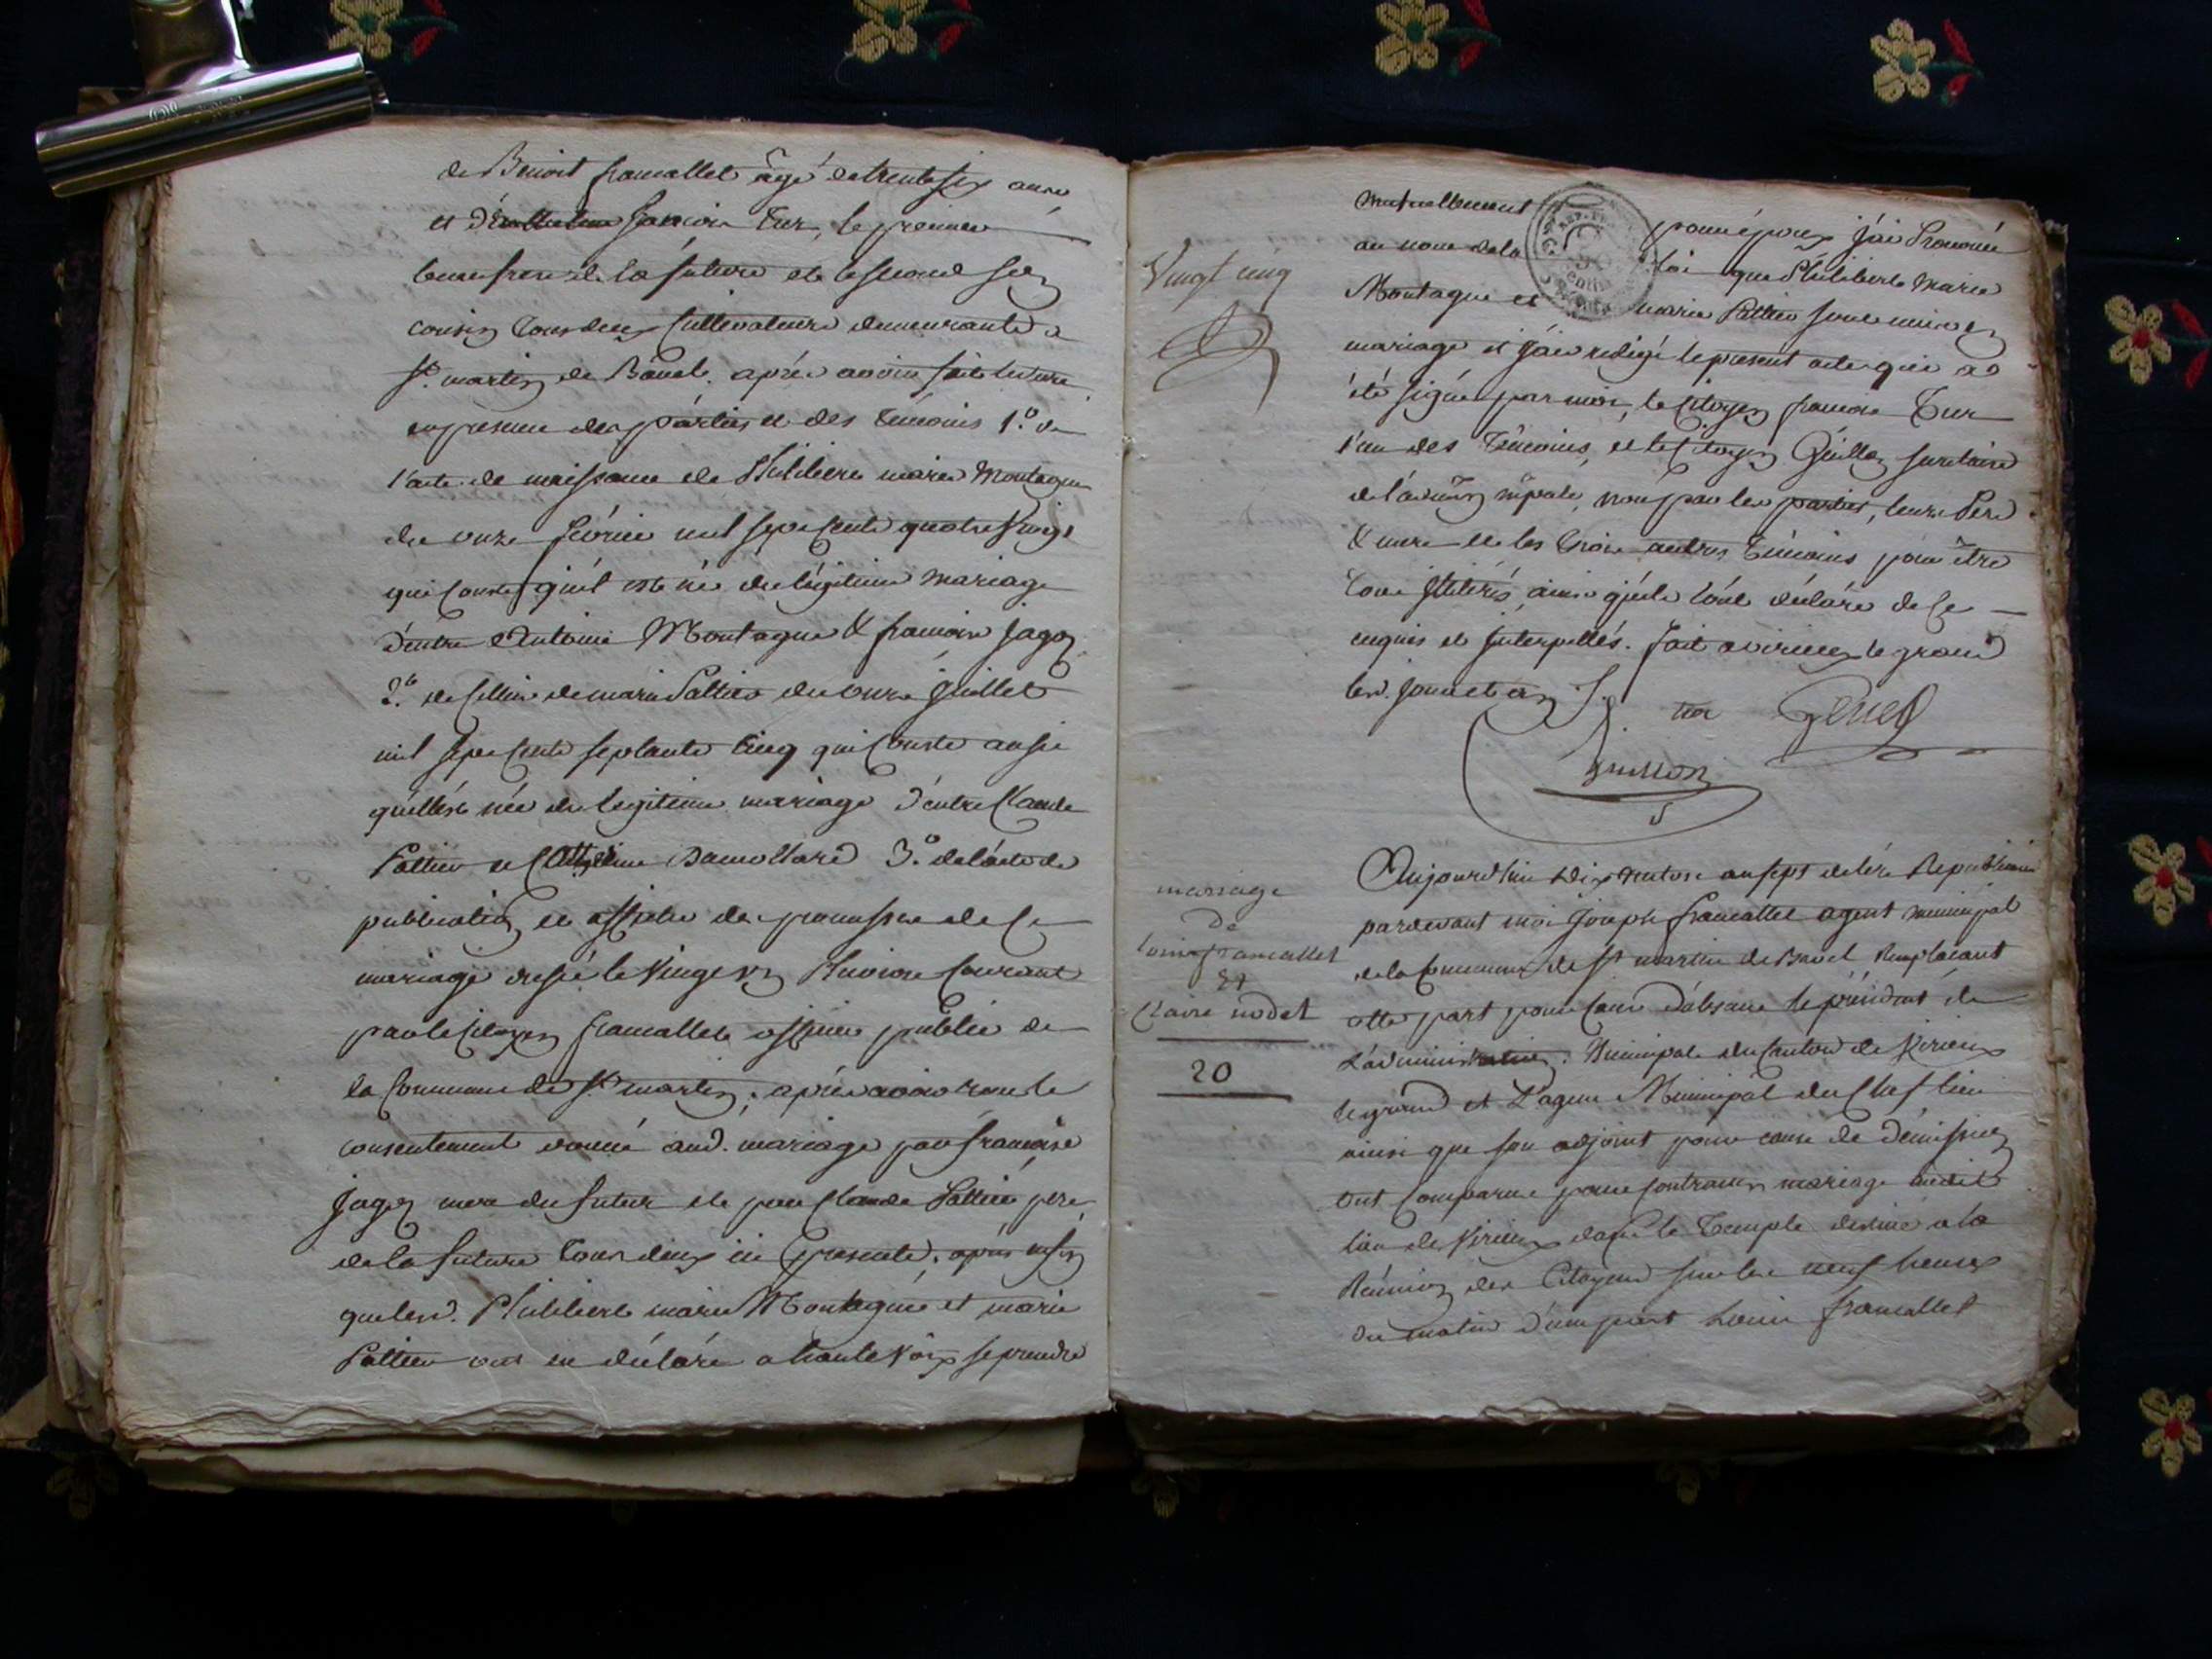 de Benoit francallet âgé de trente six ans
et d' françois Tur, le premier
beau frere de la future et le second son
cousin tous deux cultivateurs demeurants a
St. martin de Bavel. aprés avoir fait lecture
en presence des parties et des témoins 1.° de
l'acte de naissance de Philibert marie Montagne
du onze février mil sept cents quatre vingt
qui constate qu'il est né du légitime mariage
d'entre Antoine Montagne & françoise Jagoz
2.° de Celluy de marie Pattier du onze juillet
mil sept cents septante cinq qui conste aussi
qu'elle est née du legitime mariage d'entre Claude
Pattier et 3.° de l'acte de
publication et affiche de promesse de ce
mariage dressé le vingt un Pluviose courant
par le Citoyen francallet officier public de
la Commune de St. martin, aprés avoir eu le
consentement donné aud. mariage par françoise
Jagoz mere du futur et par Claude Pattier pere
de la future tous deux ici presents, aprés enfin
que lesd. Philibert marie Montagne et marie
Pattier ont eu déclaré a haute voix se prendre
mutuellement pour époux j'ai Prononcé
au nom de la loi que Philibert Marie
Montagne et marie Pattier sont unis en
mariage et j'ai redigé le present acte qui a
été signé par moi, le Citoyen françois Tur
l'un des témoins, et le Citoyen Guillon secrétaire
de l'admõn mpale, non par les parties, leurs Pere
& mere et les trois autres témoins pour être
tous illiterés, ainsi qu'ils l'ont déclaré de ce
enquis et interpellés. fait a virieu le grand
lesd. jour et an
Vingt cinq
tur Genet
Guillon
mariage
de
Louis francallet
Et
Claire nodet
20
Aujourd'hui dix ventose an sept de l'ére Republicaine
pardevant moi Joseph francallet agent municipal
de la commune de St martin de Bavel remplaçant
cette part pour cause d'absence le président de
L'administration Municipale du canton de Virieux
le grand et L'agent Municipal du Chef lieu
ainsi que son adjoint pour cause de démission
ont comparus pour contracter mariage audit
lieu de Virieux dans le Temple destiné a la
Réunion des Citoyens sur les neuf heures
du matin d'une part Louis francallet